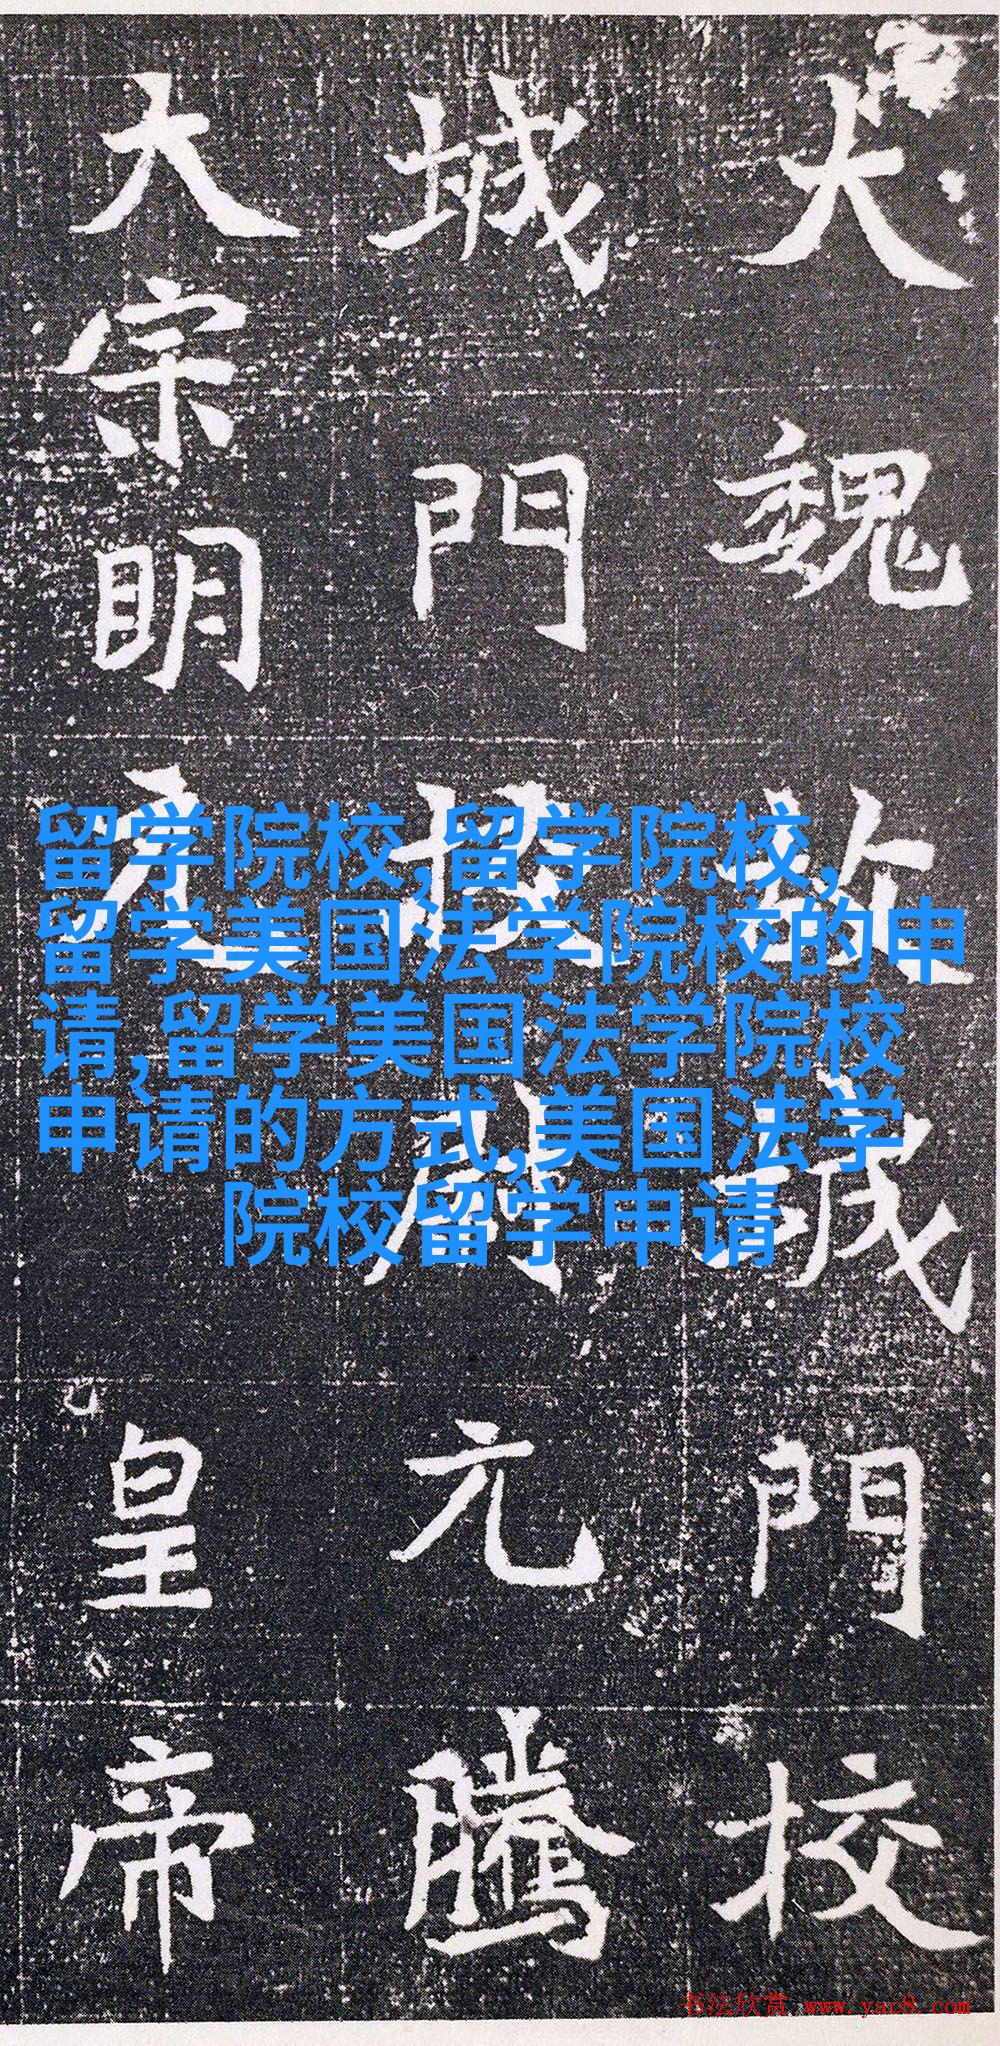 大魏故城門校
城門校尉元騰
大宗明元皇帝
留学院校,留学院校,
留学美国法学院校的申
请,留学美国法学院校
申请的方式,美国法学
院校留学申请
书法欣赏 www.yac8.com